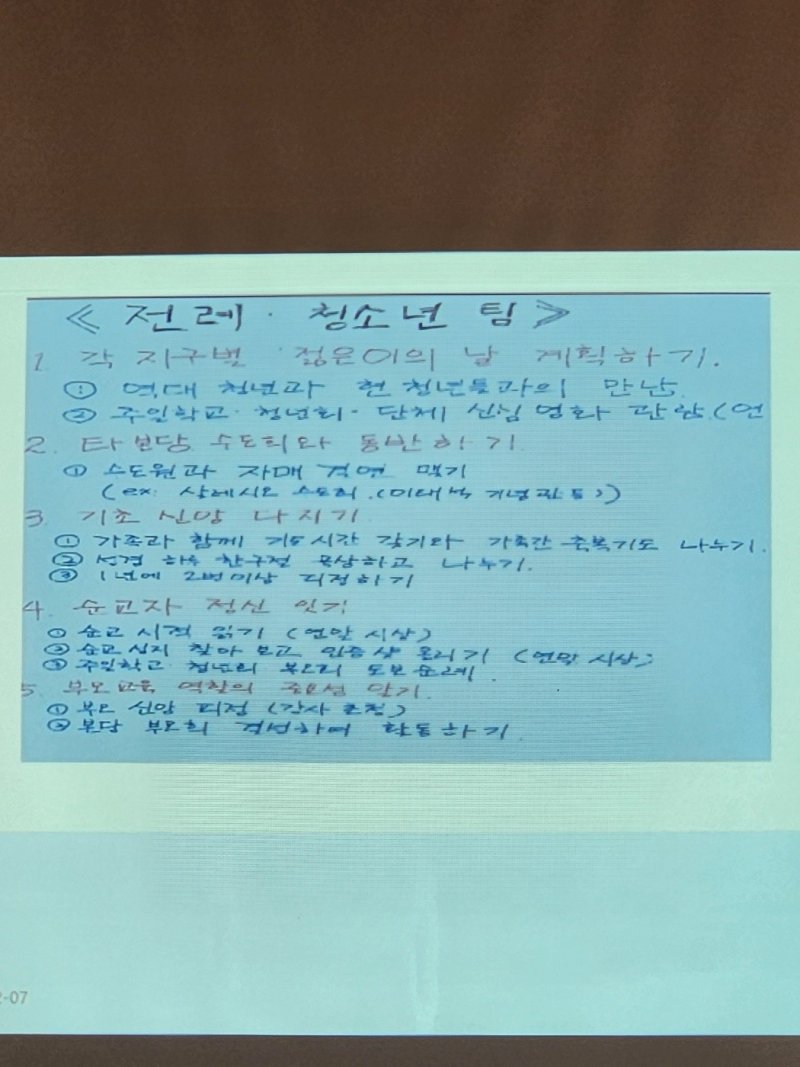 《 전례 · 청소년 팀 》
1. 각 지구별 젊은이의 날 계획하기.
① 역대 청년과 현 청년들과의 만남.
② 주일학교 · 청년회 · 단체 신심 영화 관람. (연
2. 타본당 수도회와 동반하기.
① 수도원과 자매 결연 맺기
(ex: 살레시오 수도회. (이태석 기념관 등))
3. 기초 신앙 다지기
① 가족과 함께 기도시간 갖기와 가족간 축복기도 나누기.
② 성경 하루 한구절 묵상하고 나누기.
③ 1년에 2번이상 피정하기
4. 순교자 정신 잇기
① 순교 서적 읽기 (연말 시상)
② 순교성지 찾아 보고 인증샷 올리기 (연말 시상)
③ 주일학교 청년회 도보순례.
5. 부모교육 역할의 중요성 알기.
① 부모 신앙 피정 (강사 초청)
② 본당 부모회 결성하여 활동하기.
2-07